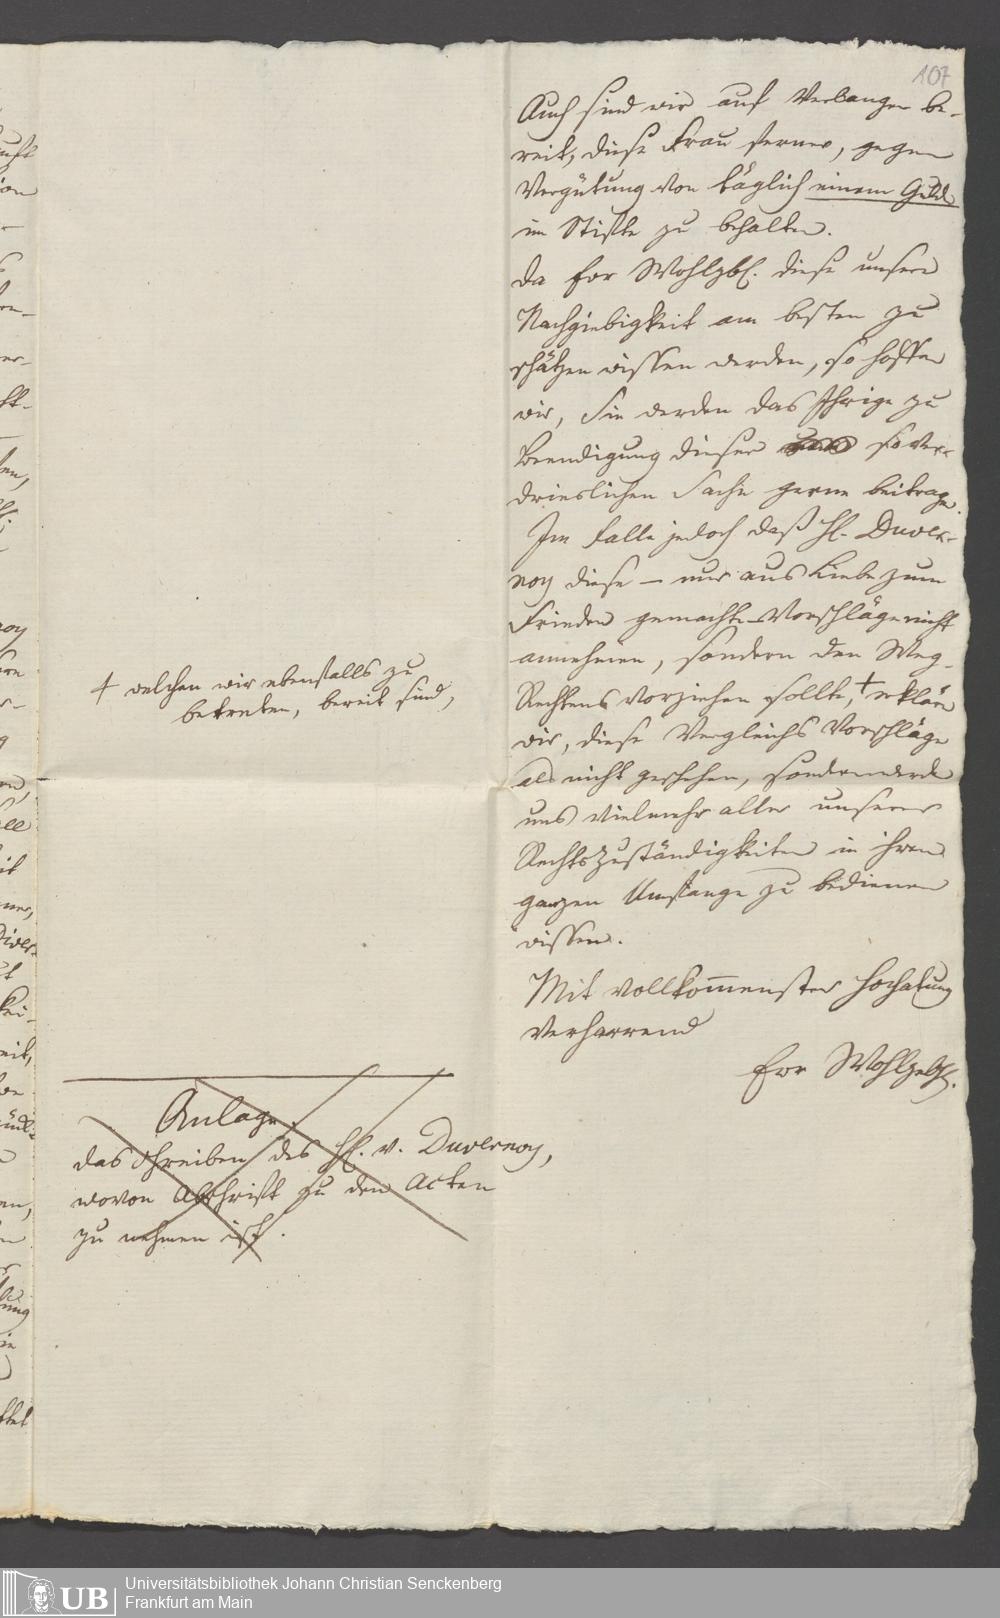 107
Auch sind wir auf Verlangen be-
reit, diese Frau ferner, gegen
Vergütung von täglich einem Guld
im Stifte zu behalten.
Da Ew Wohlgeb. diese unsere
Nachgiebigkeit am besten zu
schätzen wissen werden, so hoffen
wir, Sie werden das Ihrige zu
Beendigung dieser so ver-
drieslichen Sache gerne beitragen.
Im Falle jedoch daß H. Duver-
noy diese – nur aus Liebe zum
Frieden gemachte Vorschläge nicht
annehmen, sondern den Weg
Rechtens vorziehen sollte, + erkläre
wir, diese Vergleichs Vorschläge
als nicht geschehen, sondern werde
uns vielmehr aller unserer
Rechtszuständigkeiten in ihrem
ganzen Umfange zu bedienen
wissen.
Mit vollkom̅enster Hochachtung
verharrend
Ewr Wohlgeb.
+ welchen wir ebenfalls zu
betreten, bereit sind,
Anlage.
das Schreiben des H. v. Duvernoy,
wovon Abschrift zu den Acten
zu nehmen ist.
UB
Universitätsbibliothek Johann Christian Senckenberg
Frankfurt am Main